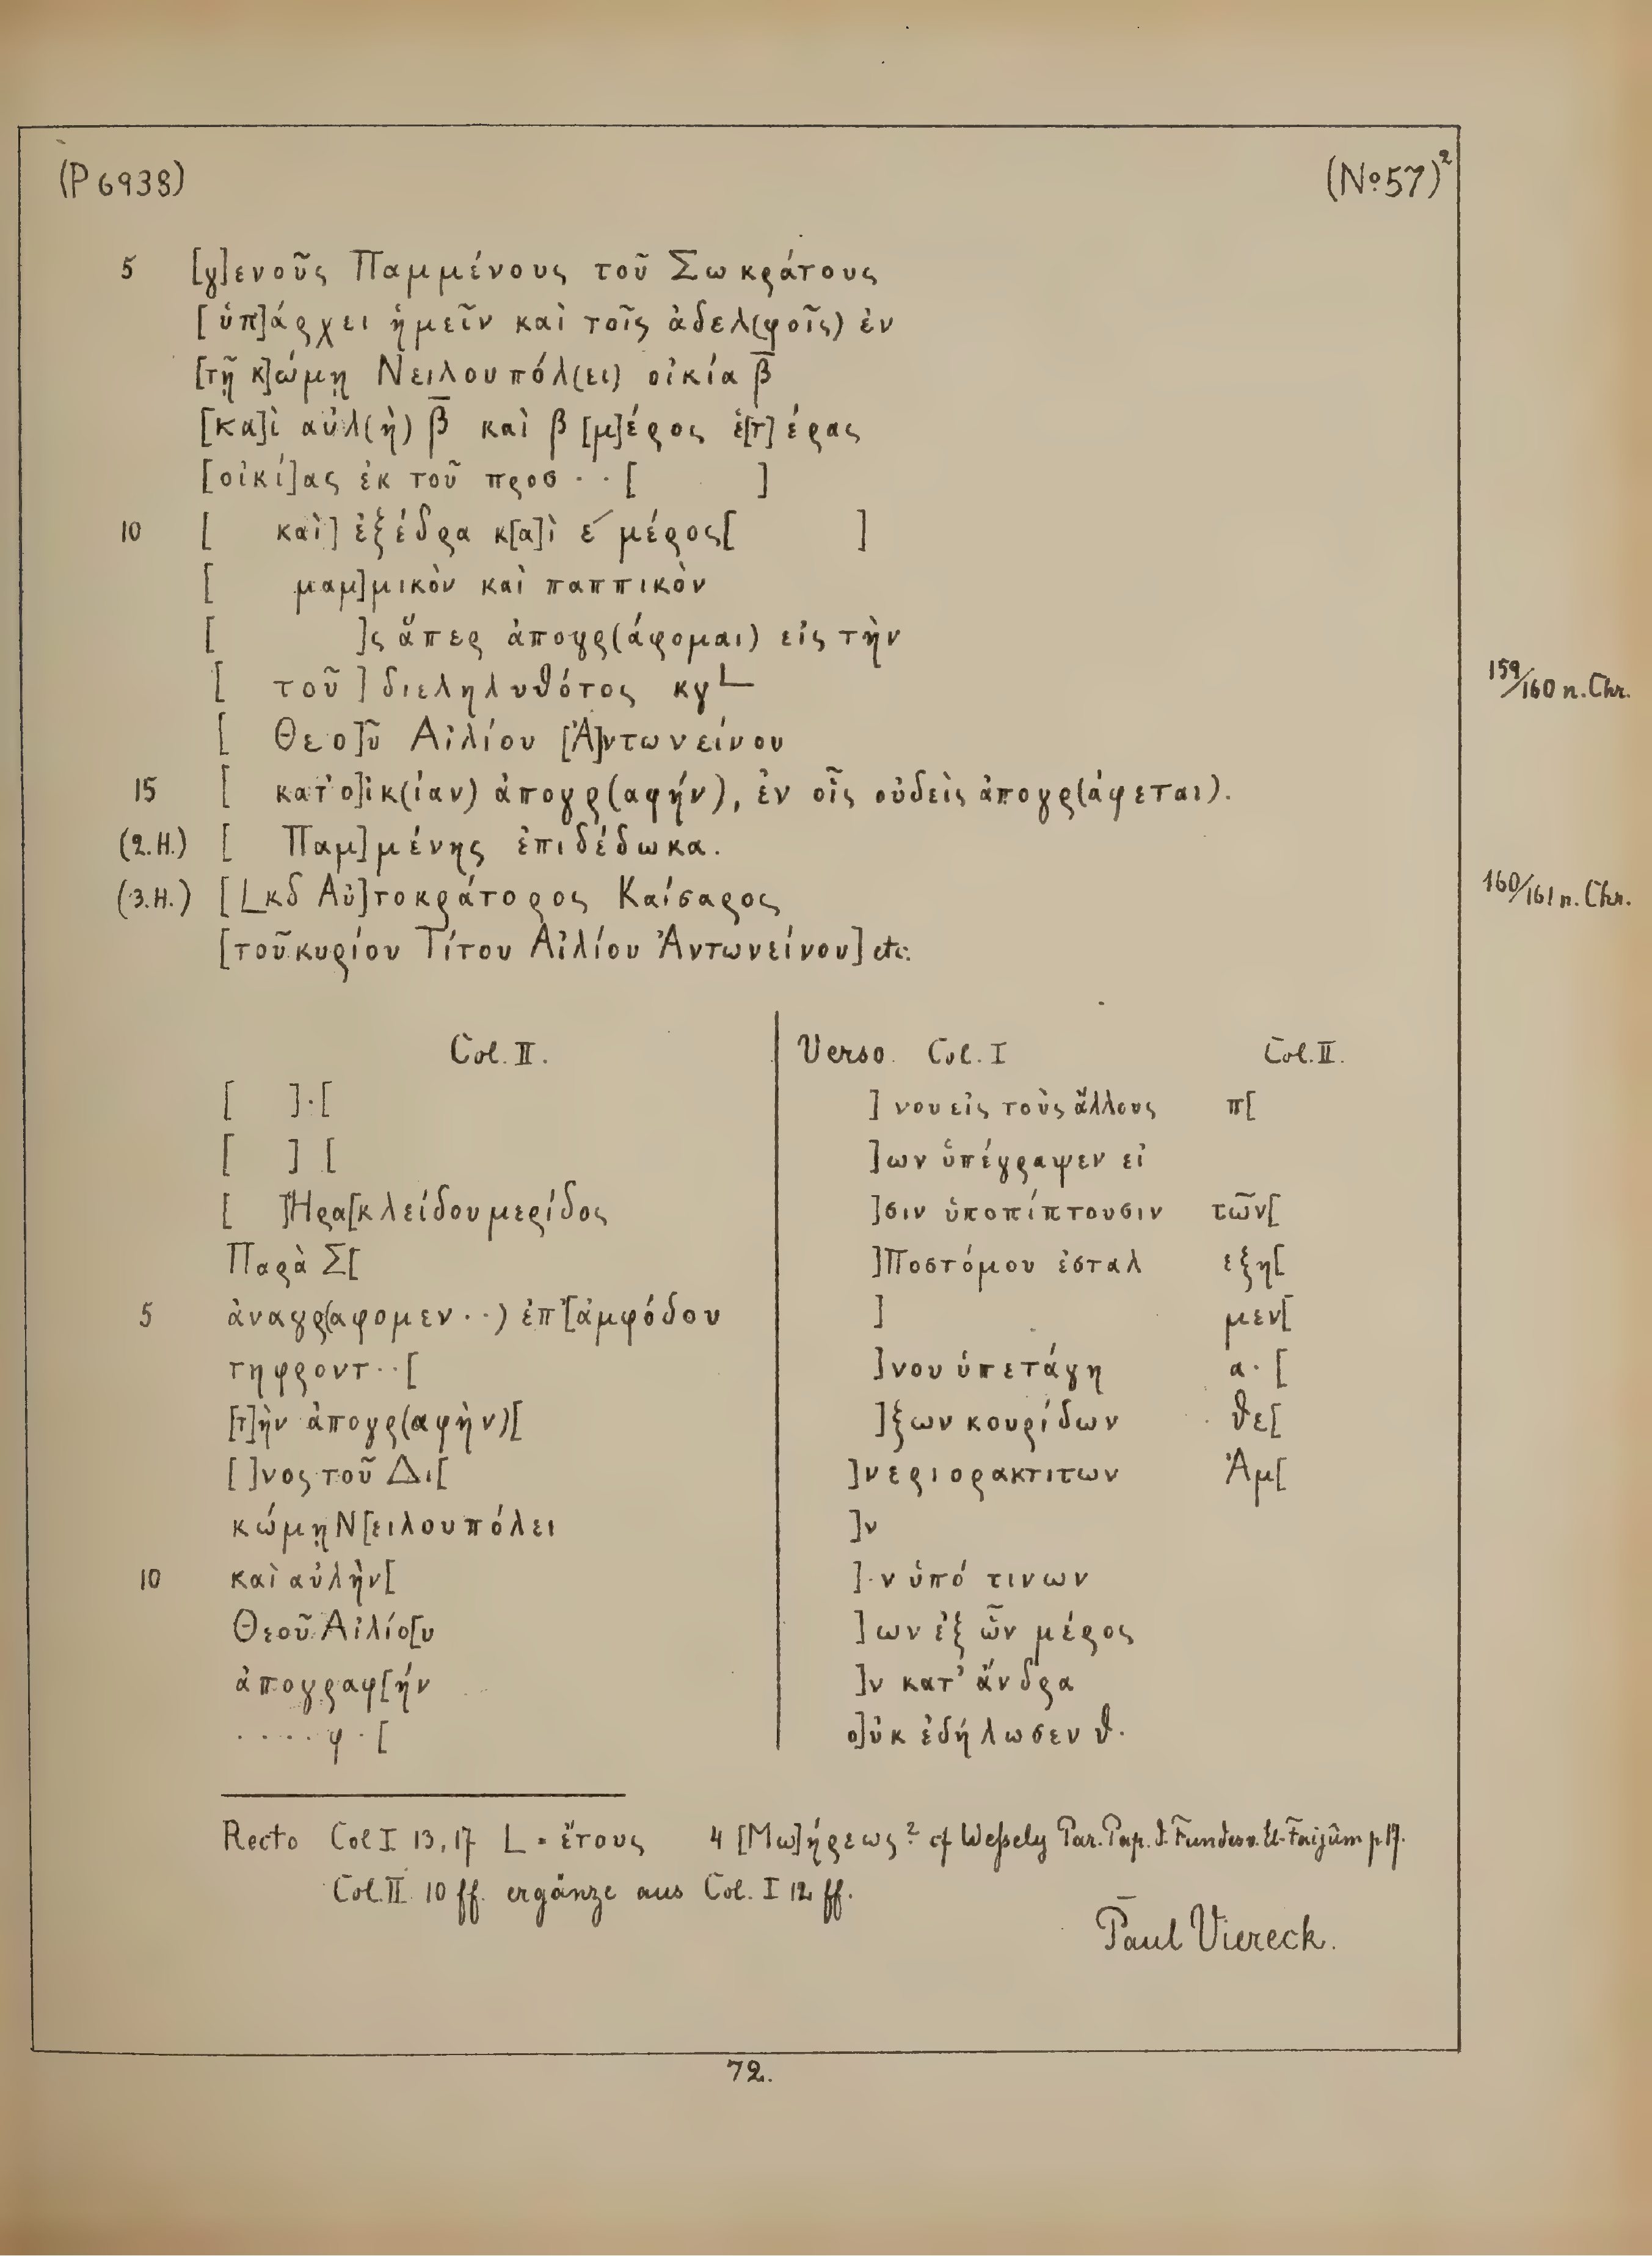 (P 6938) (No 57)²
5 [γ]ενοῦς Παμμένους τοῦ Σωκράτους
[ὑπ]άρχει ἡμεῖν καὶ τοῖς ἀδελ(φοῖς) ἐν
[τῇ κ]ώμῃ Νειλουπόλ(ει) οἰκία β̅
[κα]ὶ αὐλ(ὴ) β̅ καὶ β [μ]έρος ἑ[τ]έρας
[οἰκί]ας ἐκ τοῦ προσ··[ ]
10 [ καὶ] ἐξέδρα κ[α]ὶ ε´ μέρος[ ]
[ μαμ]μικὸν καὶ παππικὸν
[ ]ς ἅπερ ἀπογρ(άφομαι) εἰς τὴν
[ τοῦ ] διεληλυθότος κγ L 159/160 n. Chr.
[ Θεο]ῦ Αἰλίου [Ἀ]ντωνείνου
15 [ κατ' ο]ἰκ(ίαν) ἀπογρ(αφήν), ἐν οἷς οὐδεὶς ἀπογρ(άφεται).
(2. H.) [ Παμ]μένης ἐπιδέδωκα.
(3. H.) [L κδ Αὐ]τοκράτορος Καίσαρος 160/161 n. Chr.
[τοῦ κυρίου Τίτου Αἰλίου Ἀντωνείνου] etc.
Col. II.
[ ]·[
[ ] [
[ ]Ἡρα[κλείδου μερίδος
Παρὰ Σ[
5 ἀναγρ(αφομεν··) ἐπ' [ἀμφόδου
τηφροντ··[
[τ]ὴν ἀπογρ(αφὴν)[
[ ]νος τοῦ Δι[
κώμῃ Ν[ειλουπόλει
10 καὶ αὐλὴν[
Θεοῦ Αἰλίο[υ
ἀπογραφ[ήν
·····φ·[
Verso Col. I Col. II.
] νου εἰς τοὺς ἄλλους π[
]ων ὑπέγραψεν εἰ
]σιν ὑποπίπτουσιν τῶν[
]Ποστόμου ἐσταλ εξη[
] μεν[
]νου ὑπετάγη α·[
]ξων κουρίδων θε[
]νεριορακτιτων Ἀμ[
]ν
]·ν ὑπό τινων
]ων ἐξ ὧν μέρος
]ν κατ' ἄνδρα
ο]ὐκ ἐδήλωσεν θ·
Recto Col I 13, 17 L = ἔτους 4 [Μω]ήρεως? cf Weßely Par. Pap. d. Fundes v. El-Faijûm p 19.
Col. II 10 ff. ergänze aus Col. I 12 ff.
Paul Viereck.
72.